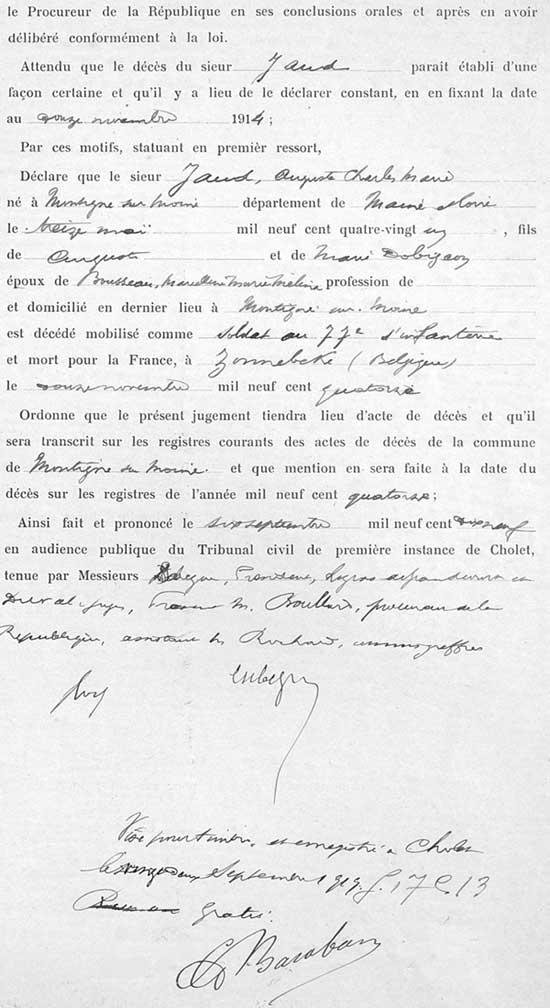 le Procureur de la République en ses conclusions orales et après en avoir
délibéré conformément à la loi.
Attendu que le décès du sieur Jaud paraît établi d'une
façon certaine et qu'il y a lieu de le déclarer constant, en en fixant la date
au douze novembre 1914 ;
Par ces motifs, statuant en premièr ressort,
Déclare que le sieur Jaud, Auguste Charles Marie
né à Montigné sur Moine département de Maine et Loire
le treize mai mil neuf cent quatre-vingt un, fils
de Auguste et de Marie
époux de Bousseau, Marie profession de
et domicilié en dernier lieu à Montigné sur Moine
est décédé mobilisé comme soldat au 77e d'infanterie
et mort pour la France, à Zonnebeke (Belgique)
le douze novembre mil neuf cent quatorze
Ordonne que le présent jugement tiendra lieu d'acte de décès et qu'il
sera transcrit sur les registres courants des actes de décès de la commune
de Montigné sur Moine. et que mention en sera faite à la date du
décès sur les registres de l'année mil neuf cent quatorze ;
Ainsi fait et prononcé le six septembre mil neuf cent dix neuf
en audience publique du Tribunal civil de première instance de Cholet,
tenue par Messieurs Président,
juges, M. Boullard, procureur de la
République, M. Rochard,
Visé pour timbre et enregistré à Cholet
le Septembre 1919 f. 17 C. 13
Gratis.